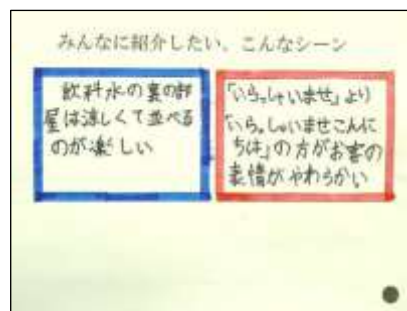 みんなに紹介したい、こんなシーン
飲料水の裏の部
屋は涼しくて並べる
のが楽しい
「いらっしゃいませ」より
「いらっしゃいませこんに
ちは」の方がお客の
表情がやわらかい